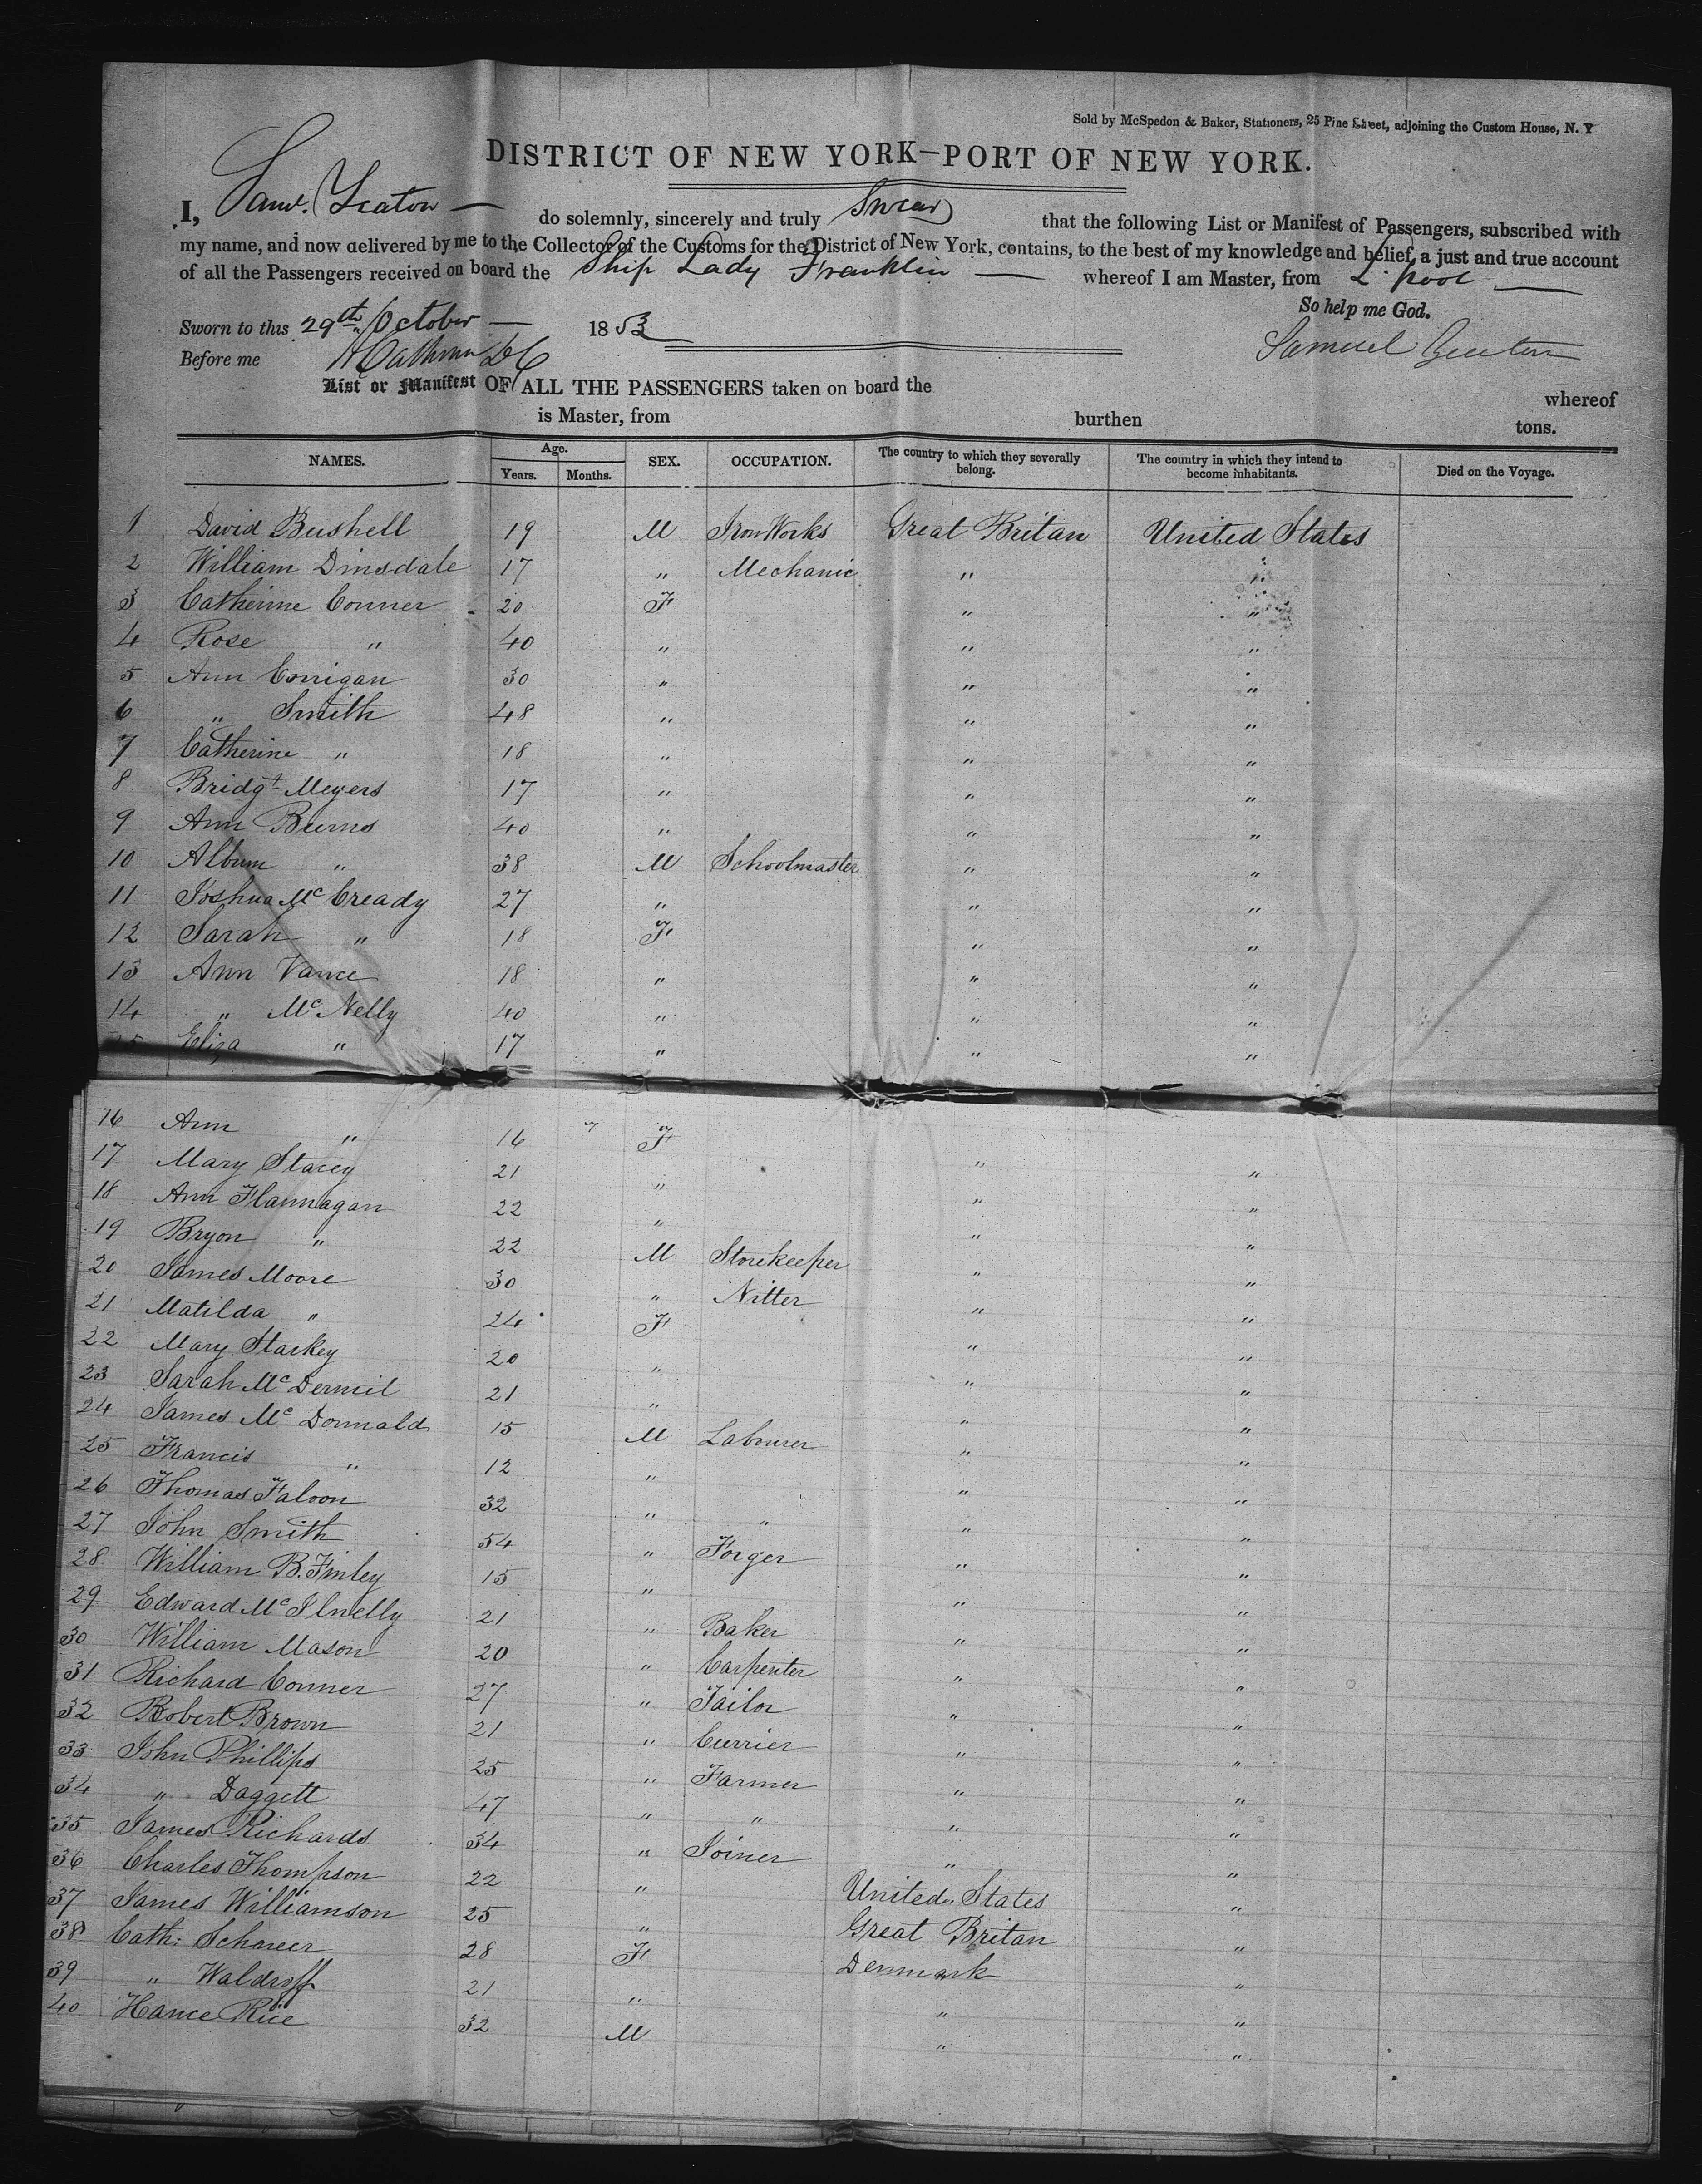 Sold by McSpedon & Baker, Stationers, 25 Pine Street, adjoining the Custom House, N. Y
DISTRICT OF NEW YORK—PORT OF NEW YORK.
I, Saml. Yeaton — do solemnly, sincerely and truly Swear that the following List or Manifest of Passengers, subscribed with
my name, and now delivered by me to the Collector of the Customs for the District of New York, contains, to the best of my knowledge and belief, a just and true account
of all the Passengers received on board the Ship Lady Franklin — whereof I am Master, from L'pool —
So help me God.
Sworn to this 29th October — 1853
Before me Samuel Yeaton
List or Manifest OF ALL THE PASSENGERS taken on board the whereof
is Master, from burthen tons.
NAMES. Age. Years. Months. SEX. OCCUPATION. The country to which they severally belong. The country in which they intend to become inhabitants. Died on the Voyage.
1 David Bushell 19 M Iron Works Great Britan United States
2 William Dinsdale 17 " Mechanic " "
3 Catherine Conner 20 F " "
4 Rose " 40 " " "
5 Ann Corrigan 30 " " "
6 " Smith 48 " " "
7 Catherine " 18 " " "
8 Bridgt Meyers 17 " " "
9 Ann Burns 40 " " "
10 Album " 38 M Schoolmaster " "
11 Joshua McCready 27 " " "
12 Sarah " 18 F " "
13 Ann Vance 18 " " "
14 " McNelly 40 " " "
15 Eliza " 17 " " "
16 Ann " 16 F " "
17 Mary Stacey 21 " " "
18 Ann Flannagan 22 " " "
19 Bryon " 22 M Storekeeper " "
20 James Moore 30 " Nitter " "
21 Matilda " 24 F " "
22 Mary Starkey 20 " " "
23 Sarah McDermil 21 " " "
24 James McDonnald 15 M Labourer " "
25 Francis " 12 " " "
26 Thomas Faloon 32 " " " "
27 John Smith 54 " Forger " "
28 William B. Finley 15 " " "
29 Edward McIlnelly 21 " Baker " "
30 William Mason 20 " Carpenter " "
31 Richard Conner 27 " Tailor " "
32 Robert Brown 21 " Currier " "
33 John Phillips 25 " Farmer " "
34 " Daggett 47 " " " "
35 James Richards 34 " Joiner " "
36 Charles Thompson 22 " United States "
37 James Williamson 25 " Great Britan "
38 Cath: Schareer 28 F Denmark "
39 " Waldroff 21 " " "
40 Hance Rice 32 M " "